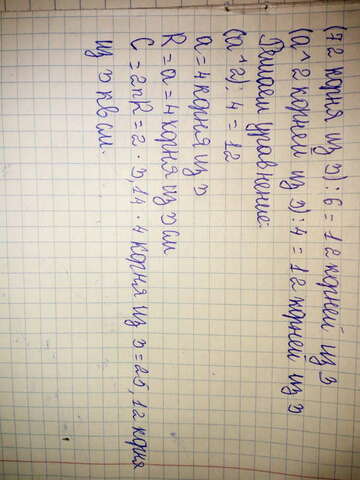 (72 корня из 3):6=12 корней из 3
(a^2 корней из 3):4=12 корней из 3
Решаем уравнение:
(a^2):4=12
a=4 корня из 3
R=a=4 корня из 3 см
C=2пR=2·3,14·4 корня из 3=25,12 корня
из 3 кв см.